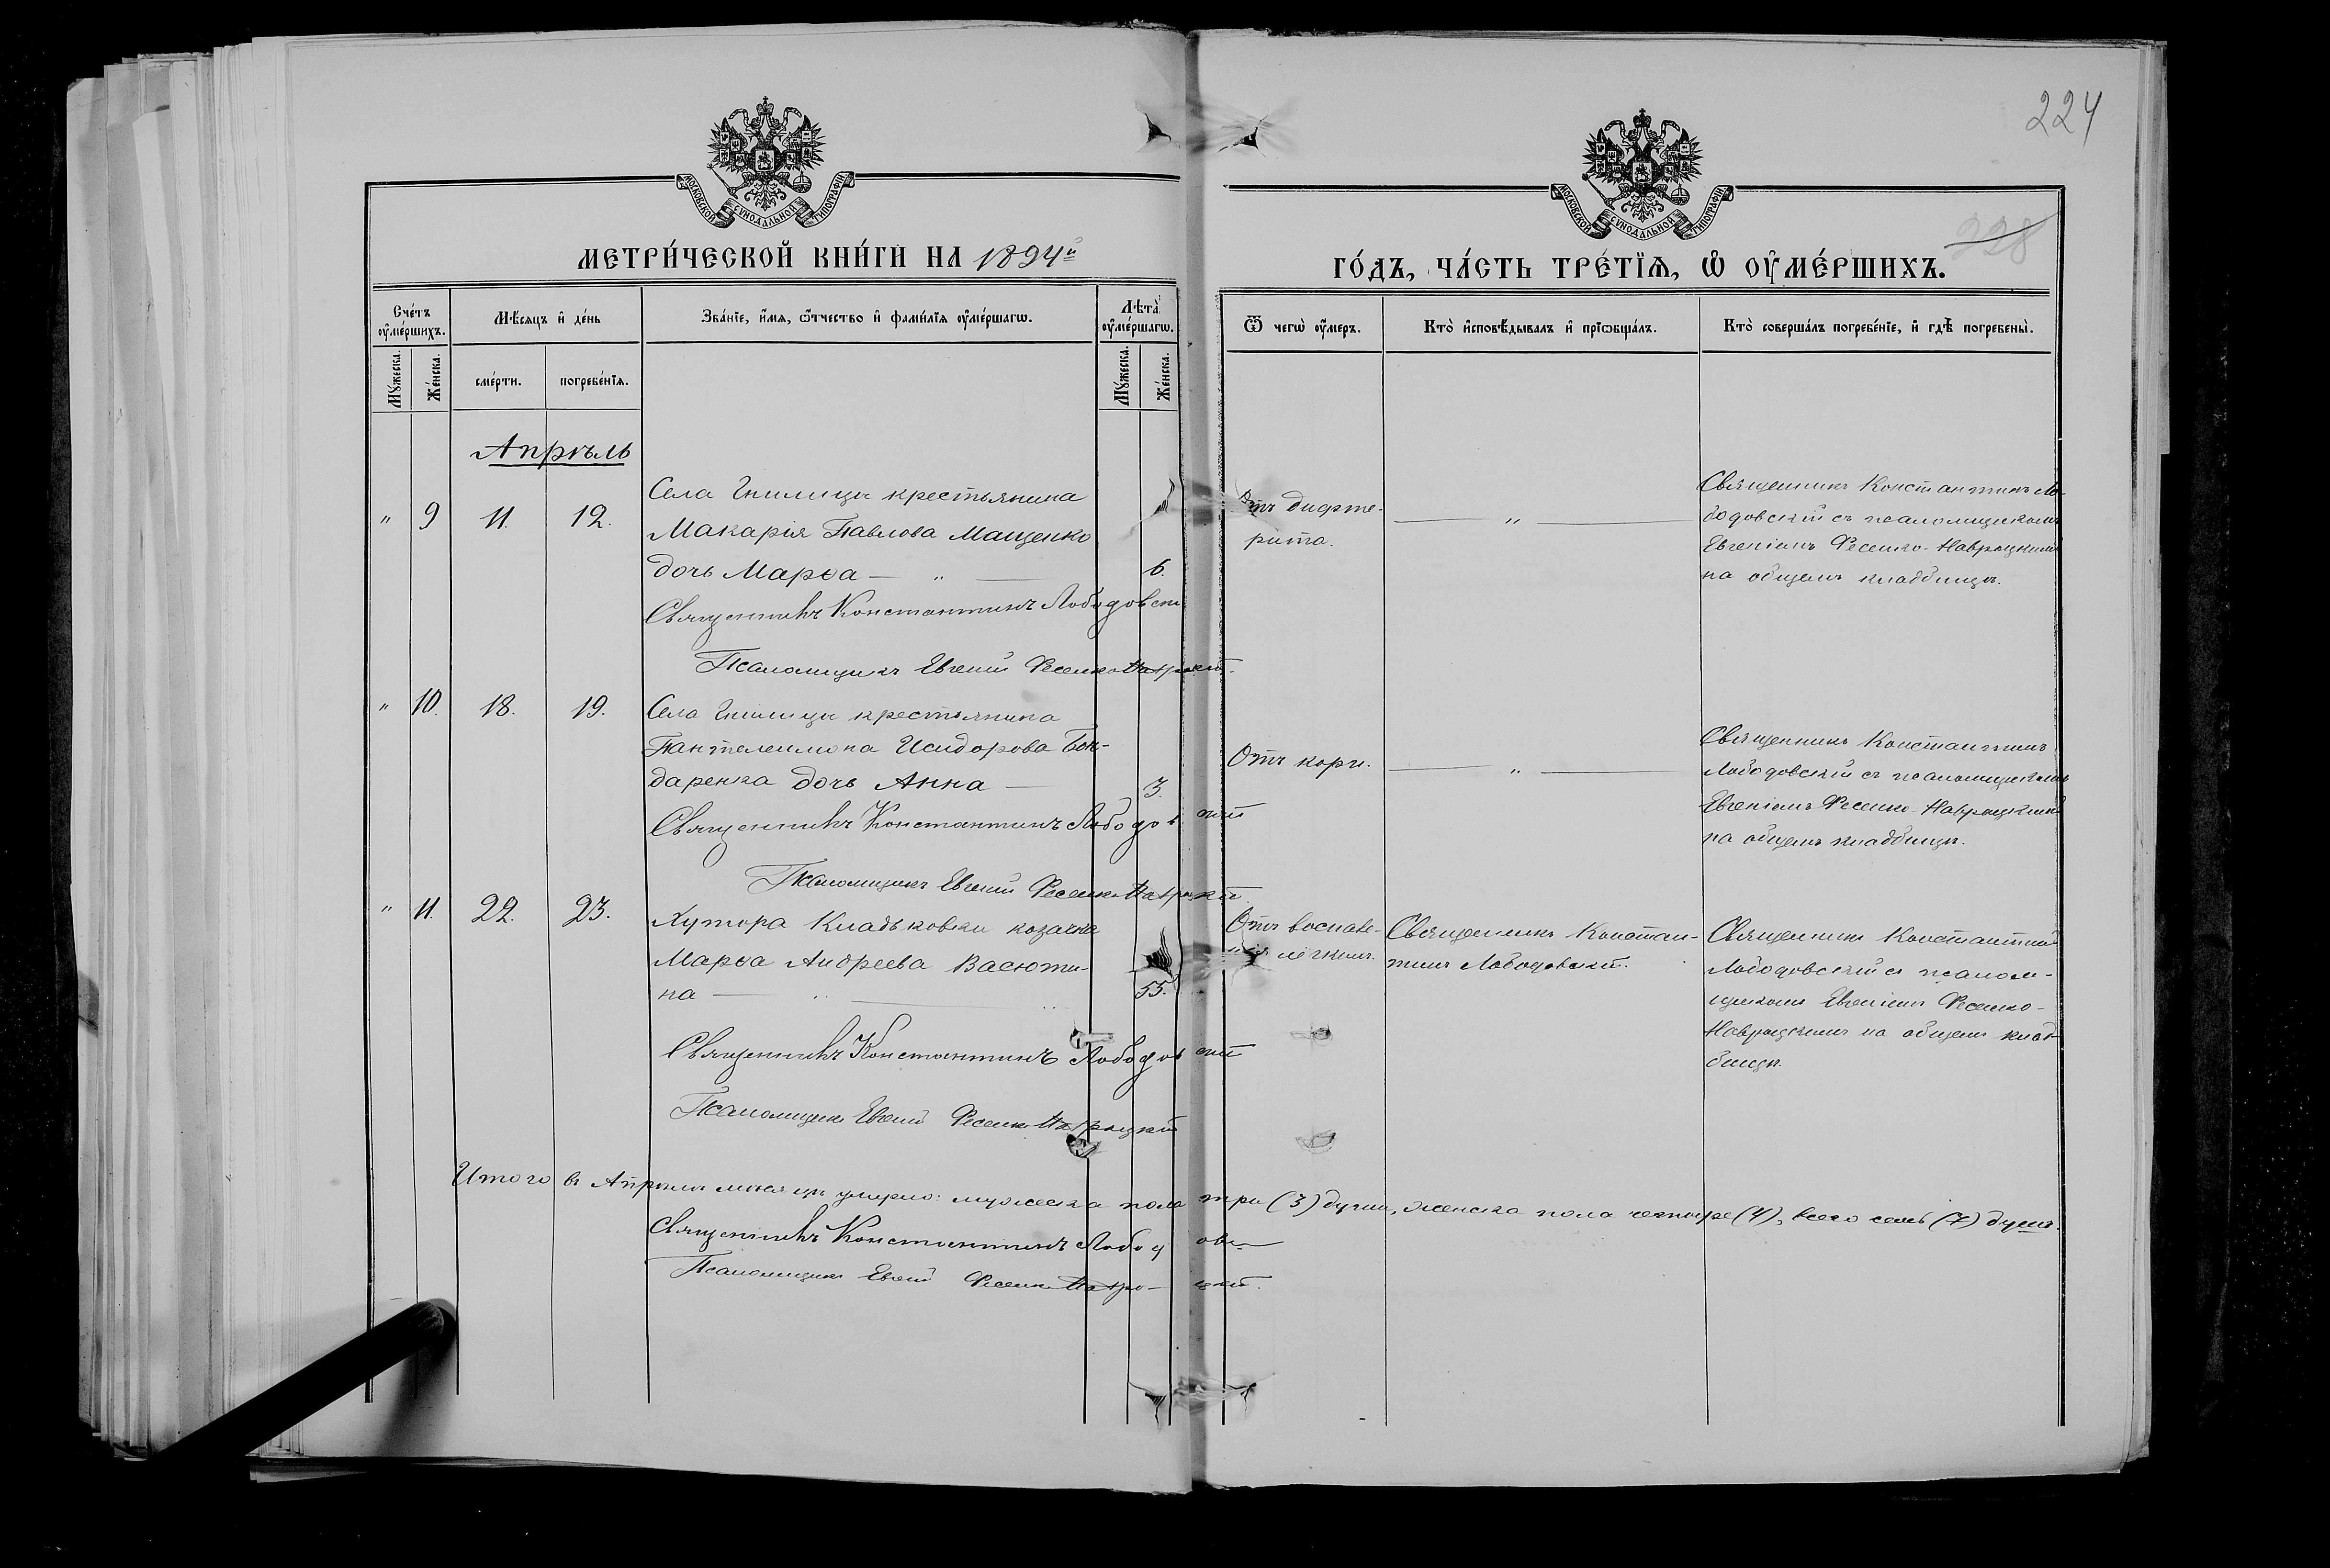 224
228
МОСКОВСКОЙ СѴНОДАЛЬНОЙ ТИПОГРАФІИ
МОСКОВСКОЙ СѴНОДАЛЬНОЙ ТИПОГРАФІИ
МЕТРИ́ЧЕСКОЙ КНИ́ГИ НА 1894й
ГО́ДЪ, ЧА́СТЬ ТРЕ́ТЇѦ, Ѽ ОУ҆МЕ́РШИХЪ.
Сче́тъ оу҆ме́ршихъ.
Мѣ́сѧцъ и҆ де́нь
Зва́нїе, и҆́мѧ, ѻ҆́тчество и҆ фами́лїѧ оу҆ме́ршагѡ.
Лѣ́та оу҆ме́ршагѡ.
Ѿ чегѡ̀ оу҆́меръ.
Кто̀ и҆сповѣ́дывалъ и҆ прїѡбща́лъ.
Кто̀ соверша́лъ погребе́нїе, и҆ гдѣ̀ погребены̀.
Мꙋ́жеска.
Же́нска.
сме́рти.
погребе́нїѧ.
Мꙋ́жеска.
Же́нска.
Апрѣль
" 9 11. 12.
Села Гнилицы крестьянина
Макарія Павлова Мащенко
дочь Марѳа — " — 6.
Священникъ Константинъ Лободовскі
Псаломщикъ Евгеній Фесенко-Навроцкій.
Отъ дифте-
рита.
— " —
Священникъ Константинъ Ло-
бодовскій съ псаломщикомъ
Евгеніемъ Фесенко-Навроцкимъ
на общемъ кладбищѣ.
" 10. 18. 19.
Села Гнилицы крестьянина
Пантелеимона Исидорова Бон-
даренка дочь Анна — 3.
Священникъ Константинъ Лободовскій
Псаломщикъ Евгеній Фесенко-Навроцкій
Отъ кори.
— " —
Священникъ Константинъ
Лободовскій съ псаломщикомъ
Евгеніемъ Фесенко-Навроцкимъ
на общемъ кладбищѣ.
" 11. 22. 23.
Хутора Кладьковки козачка
Марѳа Андреева Васюти-
на — " — 55.
Священникъ Константинъ Лободовскій
Псаломщикъ Евгеній Фесенко-Навроцкій
Отъ воспале-
нія лёгкихъ.
Священникъ Констан-
тинъ Лободовскій.
Священникъ Константинъ
Лободовскій съ псалом-
щикомъ Евгеніемъ Фесенко-
Навроцкимъ на общемъ клад-
бищѣ.
Итого въ Апрѣлѣ мѣсяцѣ умерло: мужеска пола три (3) души, женска пола четыре (4), всего семь (7) душъ.
Священникъ Константинъ Лободов
Псаломщикъ Евгеній Фесенко-Навроцкій.